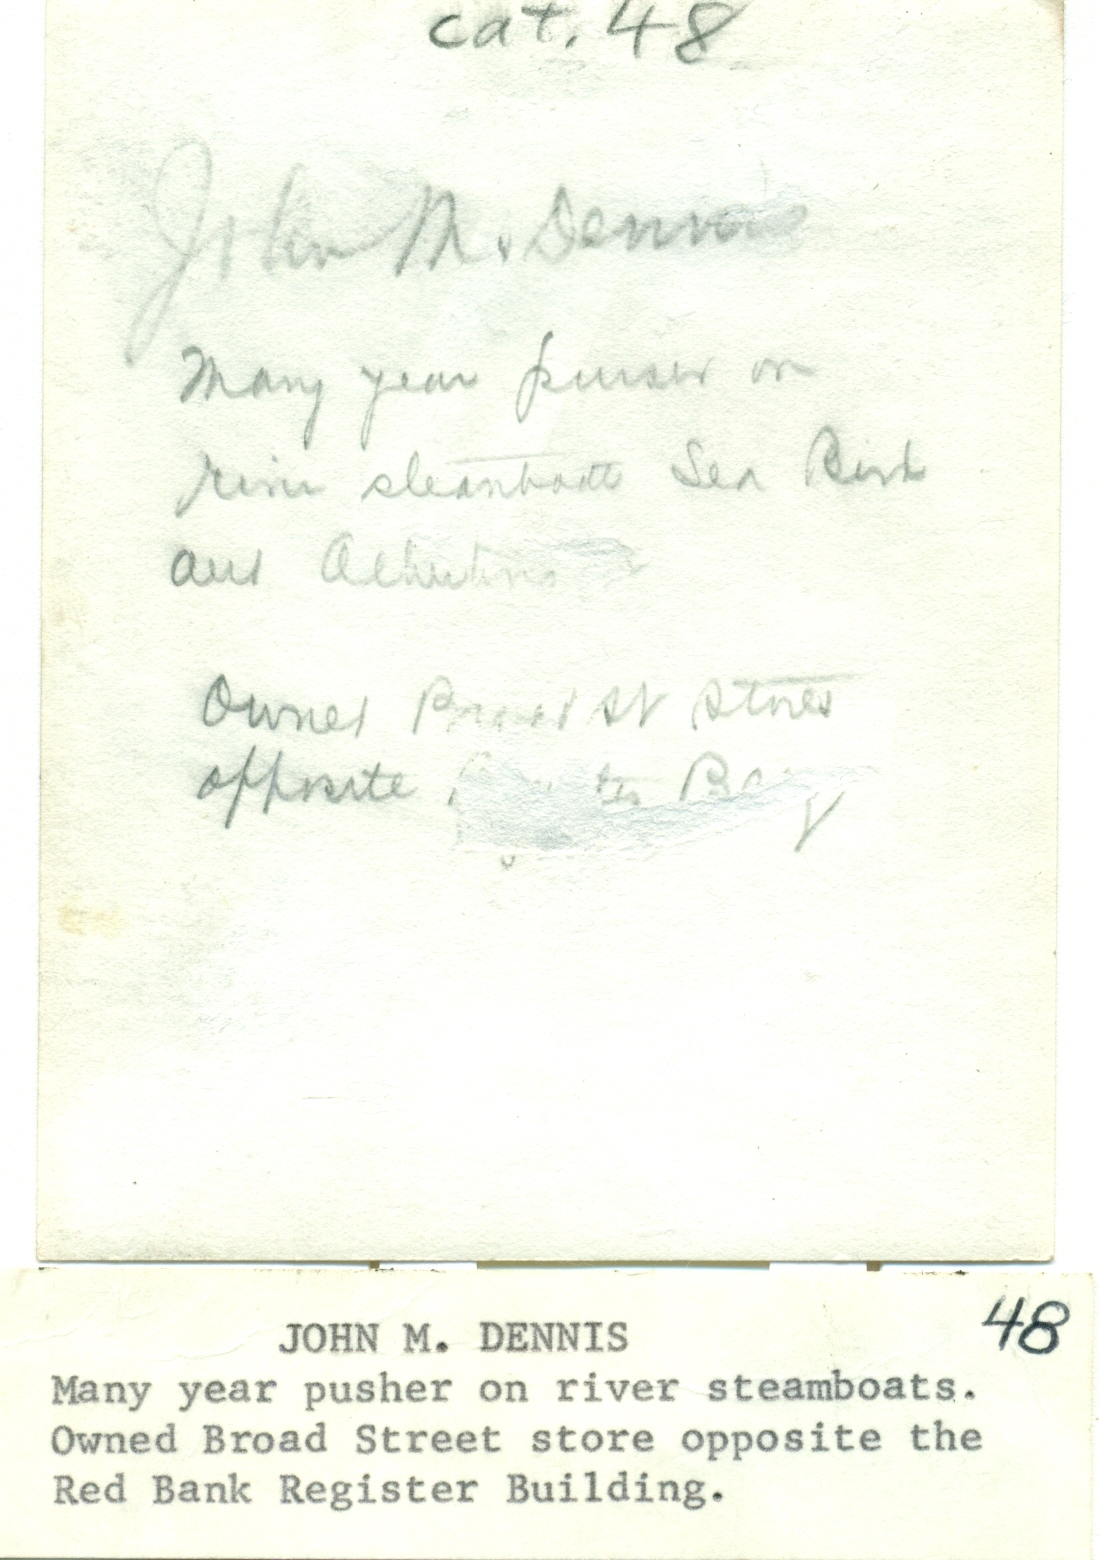 cat. 48
John M. Dennis
Many year purser on
river steamboats Sea Bird
and Albertina
Owned Broad St stores
opposite
JOHN M. DENNIS
48
Many year pusher on river steamboats.
Owned Broad Street store opposite the
Red Bank Register Building.